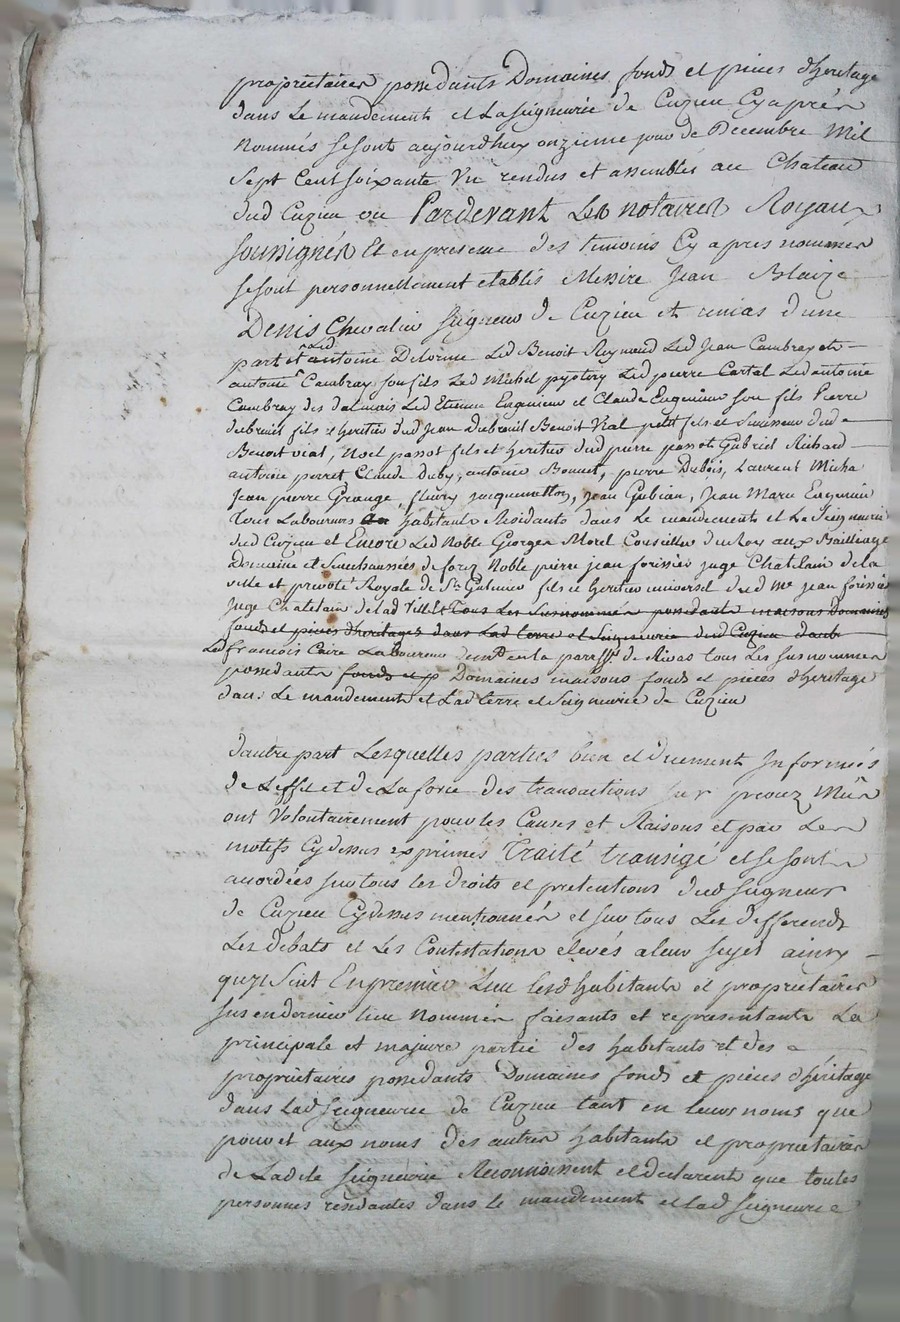 proprietaires possedants Domaines fonds et pieces dheritage
dans Le mandement et La seigneurie de Cuzieu Cy aprés
Nommés se sont aujourdhuy onzieme jour de Decembre Mil
Sept Cent soixante Un rendus et assemblés au Chateau
dud Cuzieu ou Pardevant Les notaires Royaux
soussignés Et en presence des temoins Cy apres nommes
se sont personnellement etablis Messire Jean Blaize
Denis Chevalier seigneur de Cuzieu et Rivas dune
part et Led antoine Delorme Led Benoit Reymond Led Jean Cambray et
antoine Cambray son fils Led Michel Led pierre Cartal Led antoine
Cambray des dalmais Led Etienne Eugenieu et Claude Eugenieu son fils Pierre
dubreuil fils et heritier dud Jean Dubreuil Benoit Vial petit fils et Successeur dud
Benoit vial, Noel passot fils et heritier dud pierre passot Gabriel Richard
antoine porret Claude Duby, antoine Bonnet, pierre Dubois, Laurent Micha
Jean pierre Grange, fleury jacquemetton, Jean Gubian, Jean Marie Eugenieu
Tous Laboureurs habitants Residants dans Le mandement et La Seigneurie
dud Cuzieu et Encore Led Noble Georges Morel Conseiller du Roy aux Bailliage
Domaine et Senechaussées de forez Noble pierre jean forissier juge Chatelain de la
ville et prevoté Royale de St Galmier fils et heritier universel dud me jean forissier
Juge Chatelain de lad ville et Tous Les Susnommes possedants maisons Domaines
fonds et pieces dheritages dans Lad terre et Seigneurie dud Cuzieu dautre
Led francois Caire Laboureur dem.t en la paroisse de Rivas tous Les susnommes
possedants fonds et p Domaines maisons fonds et pieces dheritage
dans Le mandement et Lad terre et Seigneurie de Cuzieu
dautre part Lesquelles parties bien et duement Informées
de Leffet et de La force des transactions sur procez Mûs
ont Volontairement pour les Causes et Raisons et par Les
motifs Cydessus exprimes Traité transigé et se sont
accordées sur tous les droits et pretentions dud seigneur
de Cuzieu Cydessus mentionnés et sur tous Les differends
Les debats et Les Contestations elevés a leur sujet ainsy
quil suit En premier Lieu Lesd habitants et proprietaires
sus en dernier lieu nommés faisants et representants La
principale et majeure partie des habitants et des
proprietaires possedants Domaines fonds et pieces dhéritage
dans Lad seigneurie de Cuzieu tant en leurs noms que
pour et aux noms des autres habitants et proprietaires
de Ladite seigneurie Reconnoissent et declarent que toutes
personnes residantes dans le mandement et lad seigneurie